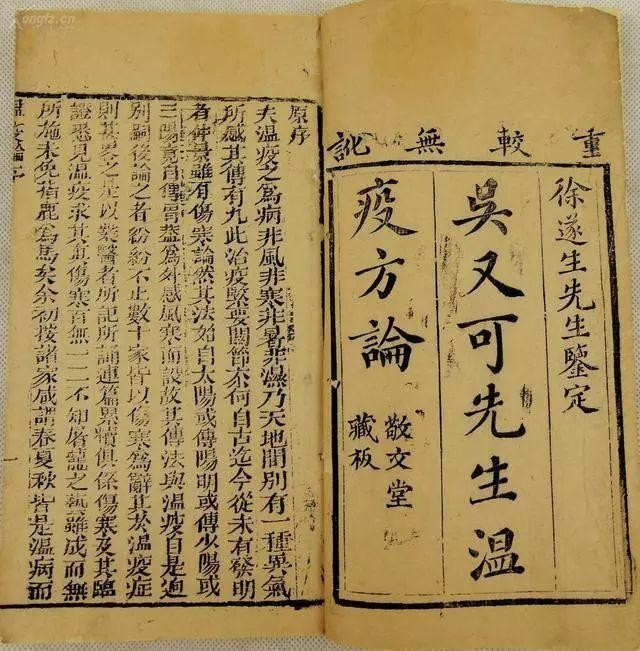 重較無訛
徐遂生先生鑒定
吳又可先生溫
疫方論
敬文堂
藏板
原序
夫溫疫之為病非風非寒非暑非濕乃天地間別有一種異氣
所感其傳有九此治疫緊要關節柰何自古迄今從未有發明
者仲景雖有傷寒論然其法始自太陽或傳陽明或傳少陽或
三陽竟自傳胃蓋為外感風寒而設故其傳法與溫疫自是迥
別嗣後論之者紛紛不止數十家皆以傷寒為辭其於溫疫症
則甚畧之是以業醫者所記所誦連篇累牘俱係傷寒及其臨
證悉見溫疫求其真傷寒百無一二不知屠龍之藝雖成而無
所施未免指鹿為馬矣余初按諸家咸謂春夏秋皆是溫病而
ongfz.cn